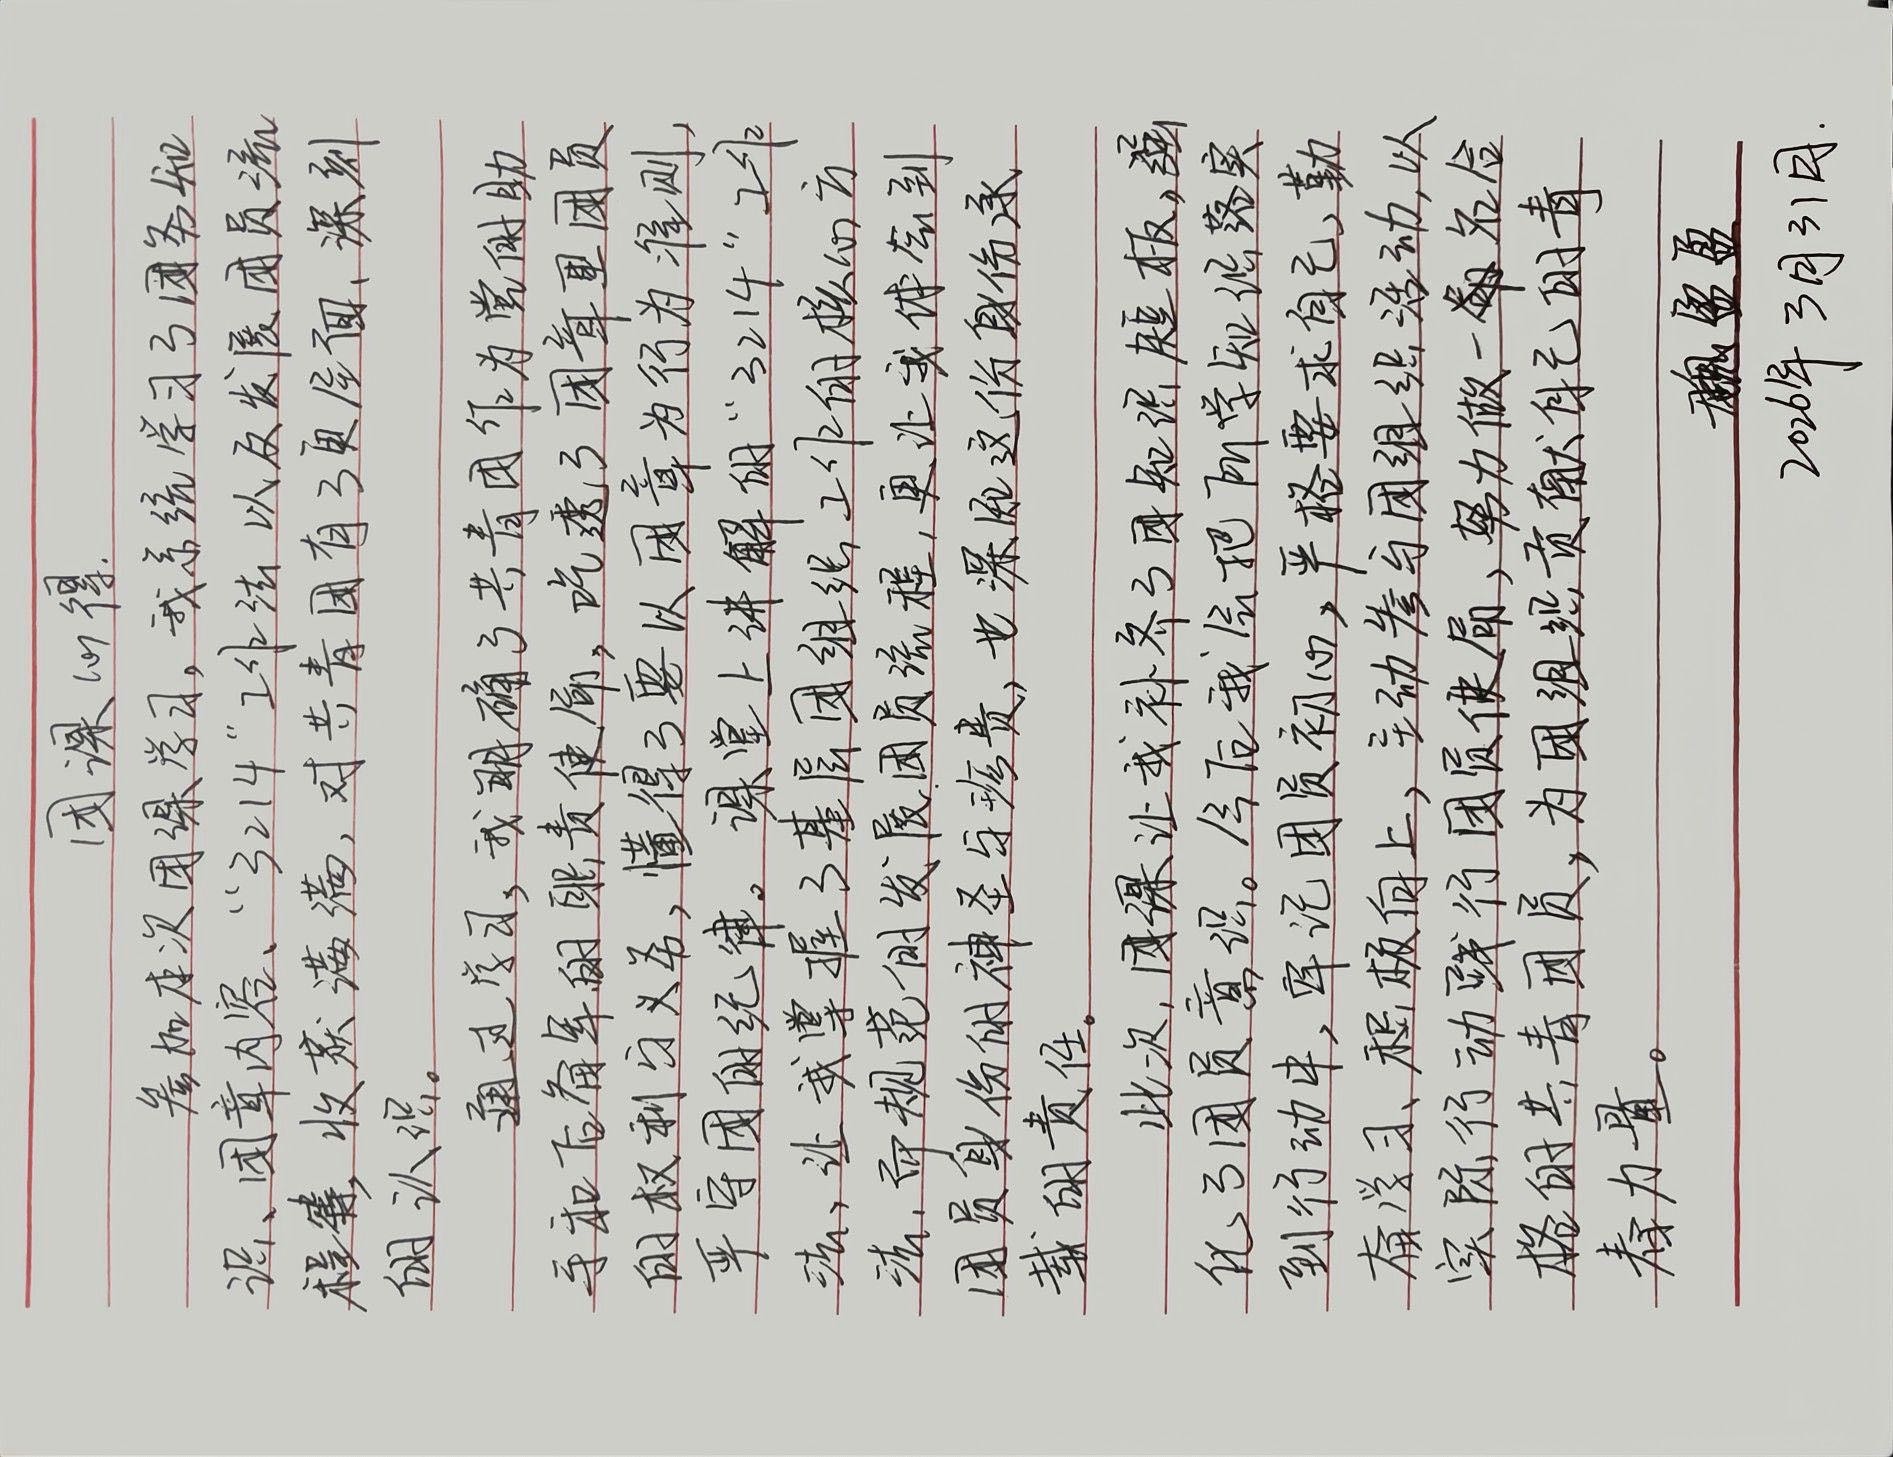 团课心得.
参加本次团课学习，我系统学习了团务知
识、团章内容、“3214”工作法以及发展团员流
程等，收获满满，对共青团有了更全面、深刻
的认识。
通过学习，我明确了共青团作为党的助
手和后备军的职责使命，吃透了团章里团员
的权利与义务，懂得了要以团章为行为准则，
严守团的纪律。课堂上讲解的“3214”工作
法，让我掌握了基层团组织工作的核心方
法，而规范的发展团员流程，更让我体会到
团员身份的神圣与珍贵，也深知这份身份承
载的责任。
此次，团课让我补齐了团知识短板，强
化了团员意识。今后我会把所学知识落实
到行动中，牢记团员初心，严格要求自己、勤
奋学习、积极向上，主动参与团组织活动，以
实际行动践行团员使命，努力做一名合
格的共青团员，为团组织贡献自己的青
春力量。
2026年3月31日.